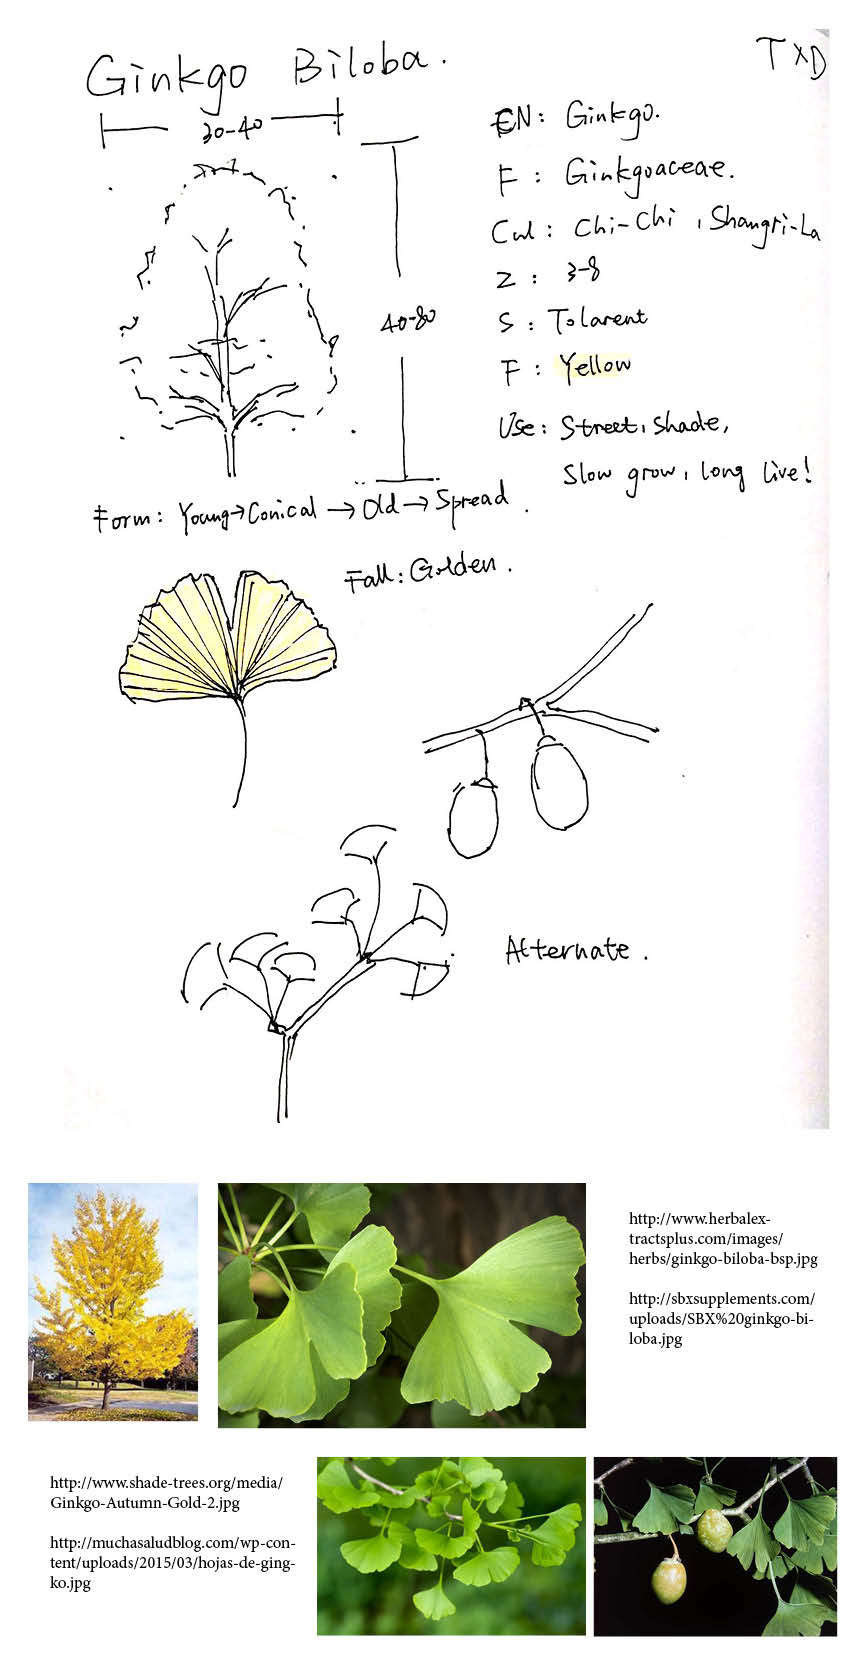 Ginkgo Biloba.
TXD
30-40
40-80
EN: Ginkgo.
F: Ginkgoaceae.
Cul: Chi-Chi, Shangri-La
Z: 3-8
S: Tolarent
F: Yellow
Use: Street, Shade,
Slow grow, long live!
Form: Young→Conical→Old→Spread.
Fall: Golden.
Alternate.
http://www.herbalex-
tractsplus.com/images/
herbs/ginkgo-biloba-bsp.jpg
http://sbxsupplements.com/
uploads/SBX%20ginkgo-bi-
loba.jpg
http://www.shade-trees.org/media/
Ginkgo-Autumn-Gold-2.jpg
http://muchasaludblog.com/wp-con-
tent/uploads/2015/03/hojas-de-ging-
ko.jpg